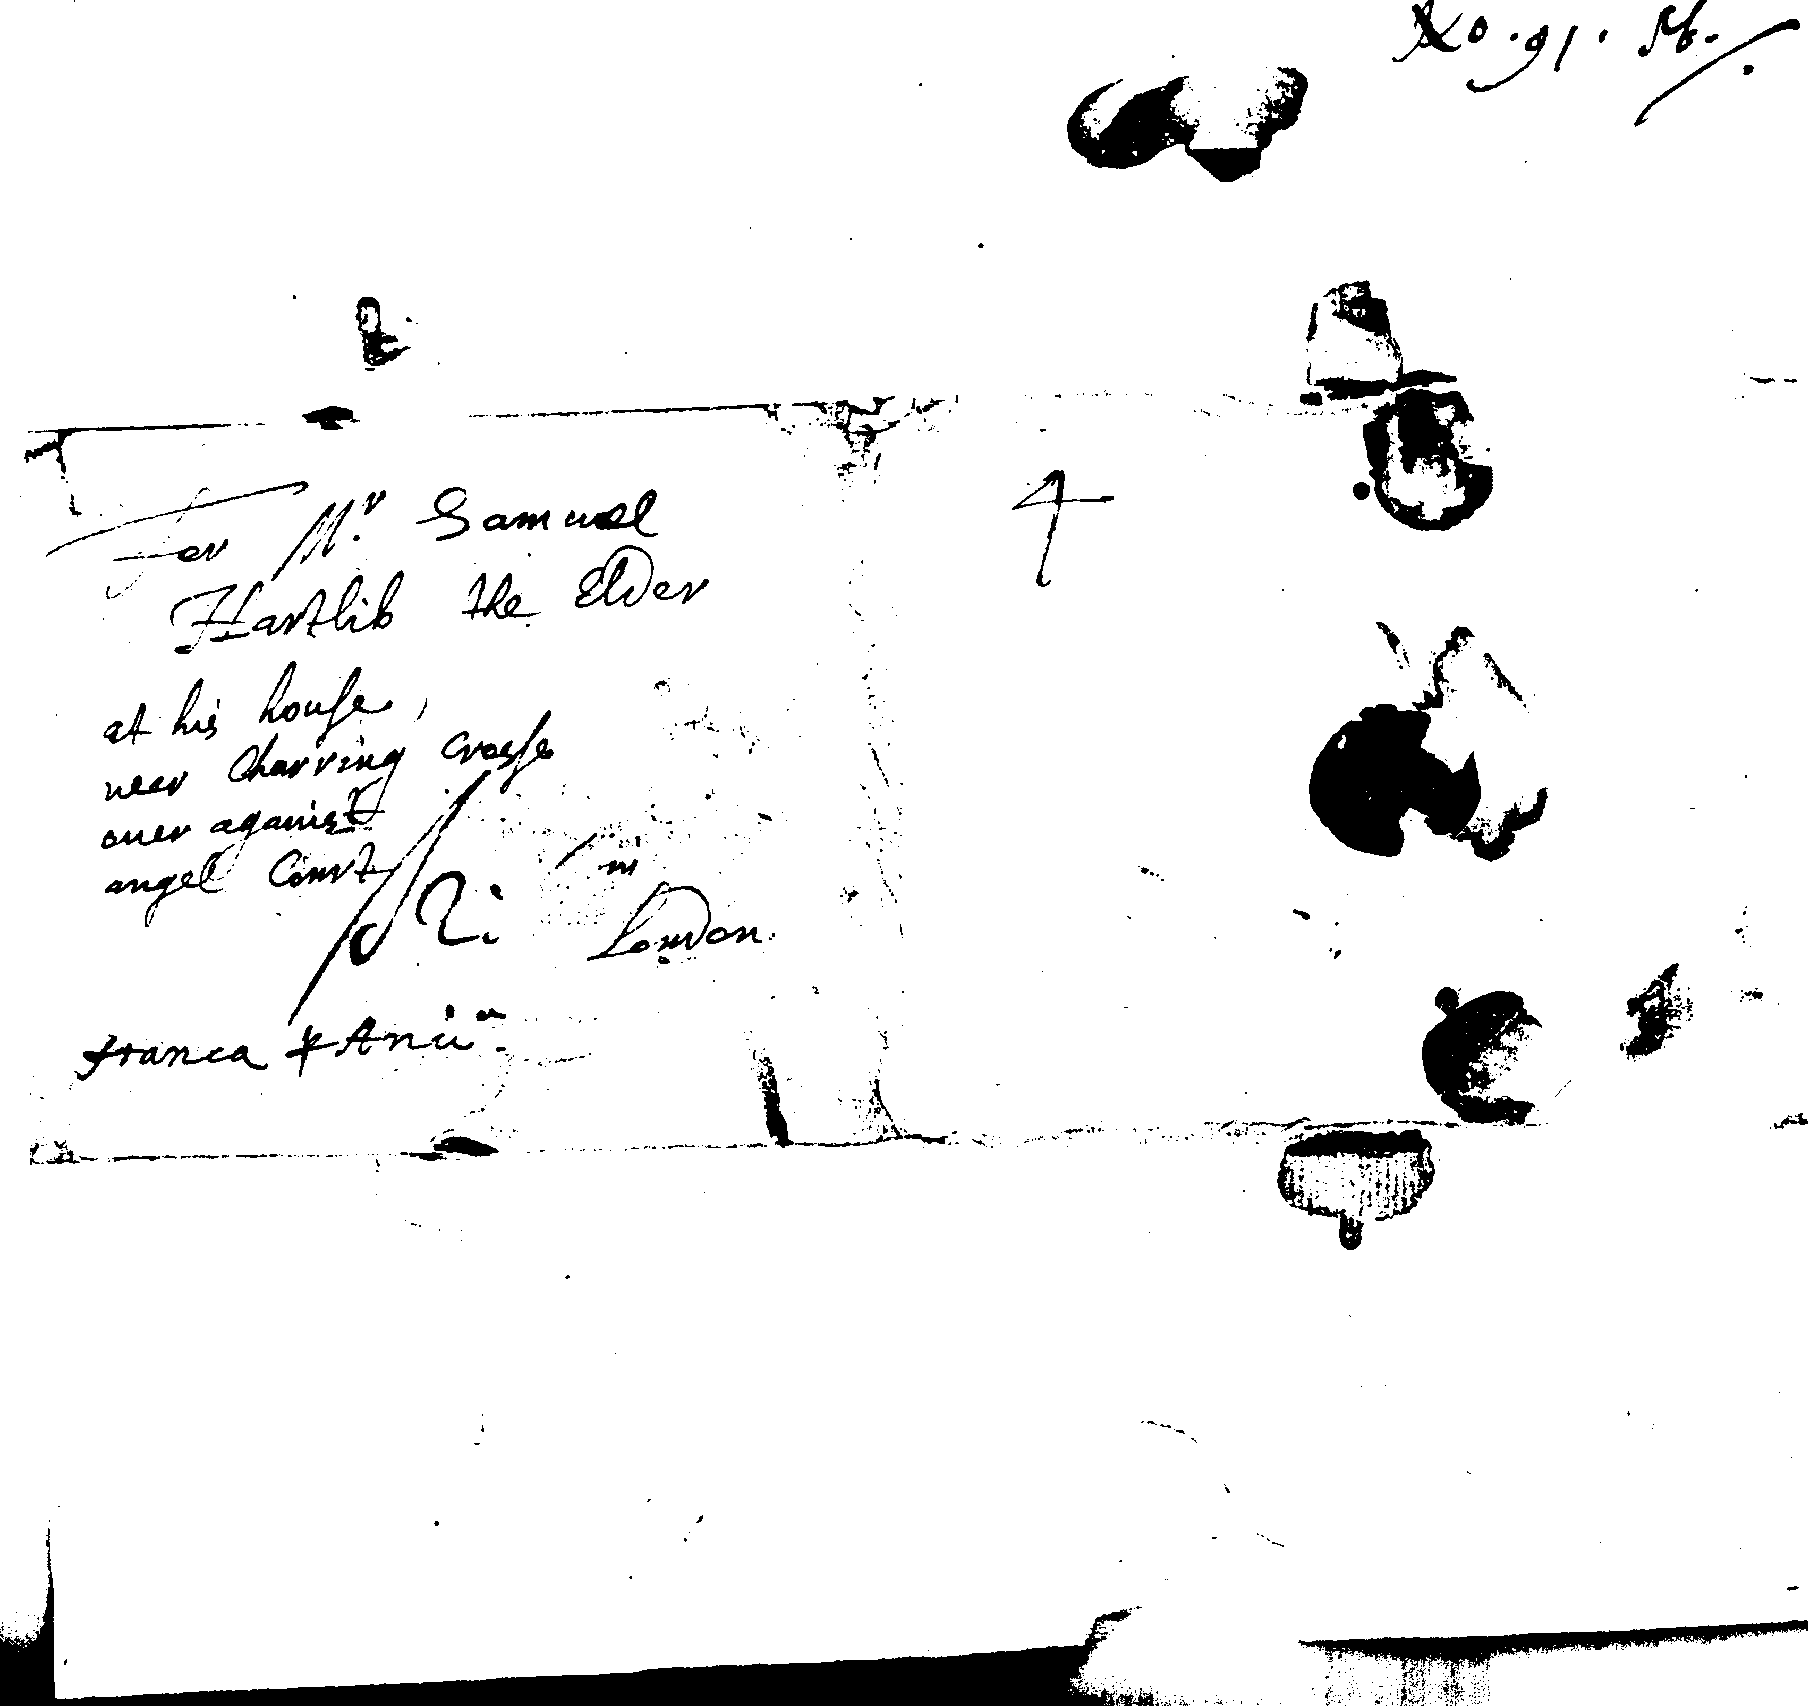 For Mr. Samuel
Hartlib the Elder
at his house,
near Charring Crosse
ouer against
angel Court
in
London.
franca
4